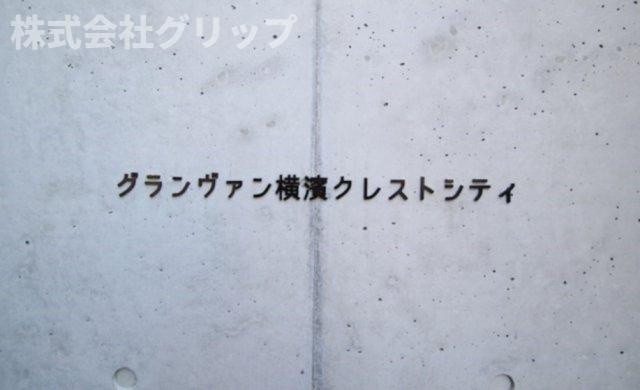 株式会社グリップ
グランヴァン横濱クレストシティ